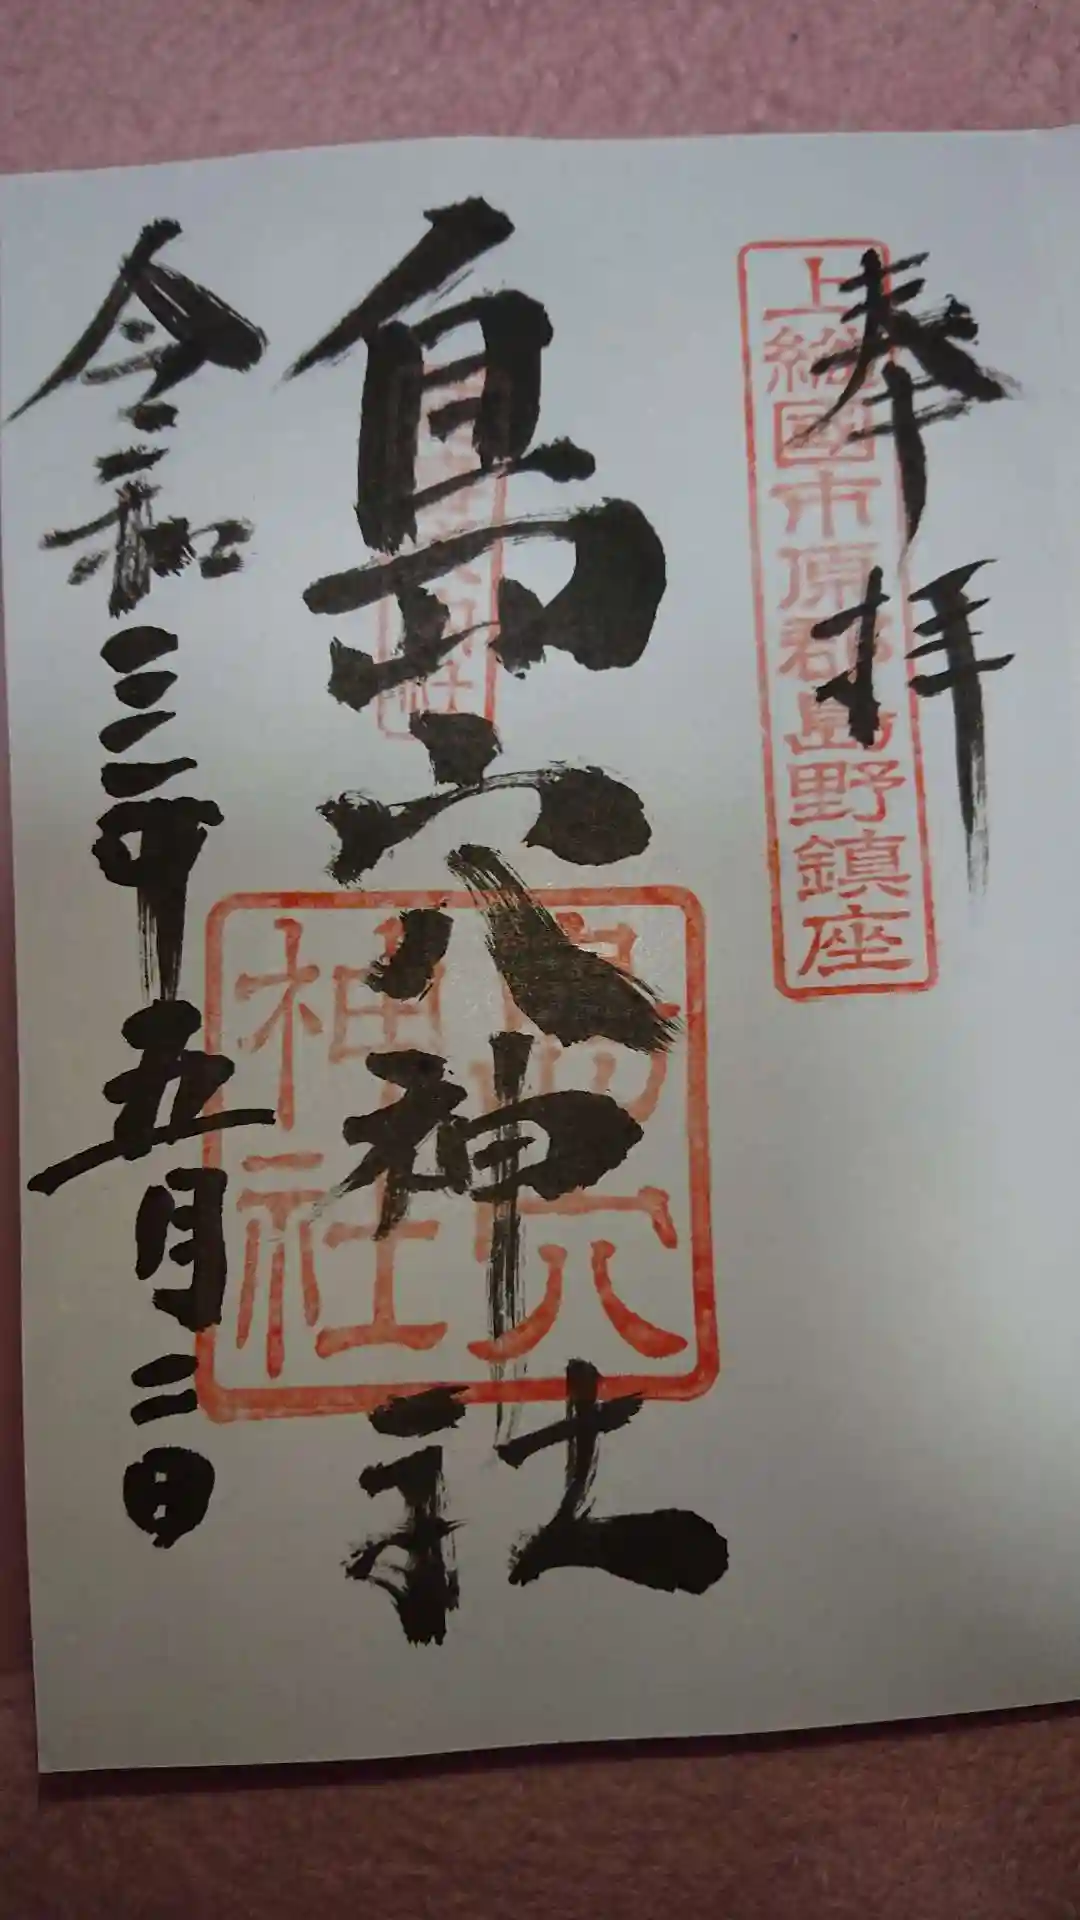 奉拝
上総國市原郡島野鎮座
島穴神社
島穴
神社
令和三年五月二日